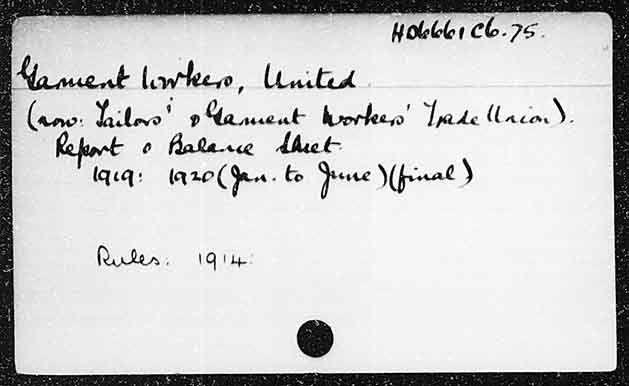 HD6661 C6.75.
Garment Workers, United.
(now: Tailors' & Garment Workers' Trade Union).
Report & Balance Sheet.
1919: 1920 (Jan. to June) (final)
Rules. 1914: